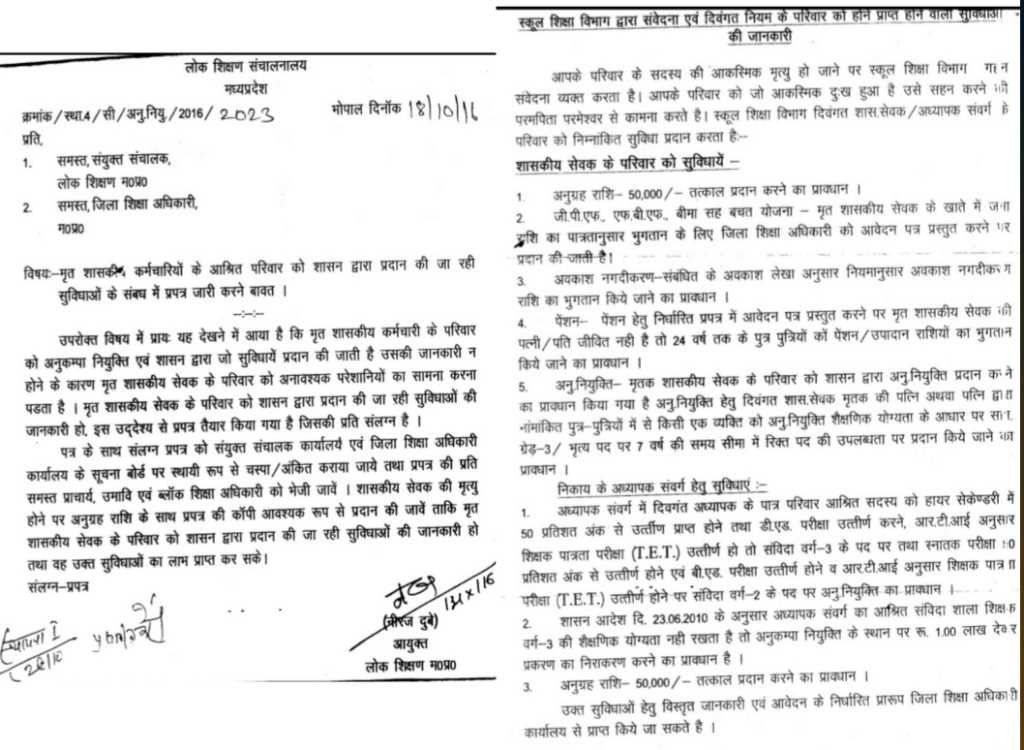 लोक शिक्षण संचालनालय
मध्यप्रदेश
क्रमांक/स्था.4/सी/अनु.नियु./2016/ 2023 भोपाल दिनॉक 18/10/16
प्रति,
1. समस्त, संयुक्त संचालक,
लोक शिक्षण म0प्र0
2. समस्त, जिला शिक्षा अधिकारी,
म0प्र0
विषय:–मृत शासकीय कर्मचारियों के आश्रित परिवार को शासन द्वारा प्रदान की जा रही
सुविधाओं के संबध में प्रपत्र जारी करने बावत ।
–:–:–
उपरोक्त विषय में प्रायः यह देखने में आया है कि मृत शासकीय कर्मचारी के परिवार
को अनुकम्पा नियुक्ति एवं शासन द्वारा जो सुविधायें प्रदान की जाती है उसकी जानकारी न
होने के कारण मृत शासकीय सेवक के परिवार को अनावश्यक परेशानियों का सामना करना
पडता है । मृत शासकीय सेवक के परिवार को शासन द्वारा प्रदान की जा रही सुविधाओं की
जानकारी हो, इस उद्देश्य से प्रपत्र तैयार किया गया है जिसकी प्रति संलग्न है ।
पत्र के साथ संलग्न प्रपत्र को संयुक्त संचालक कार्यालय एवं जिला शिक्षा अधिकारी
कार्यालय के सूचना बोर्ड पर स्थायी रूप से चस्पा/अंकित कराया जाये तथा प्रपत्र की प्रति
समस्त प्राचार्य, उमावि एवं ब्लॉक शिक्षा अधिकारी को भेजी जावें । शासकीय सेवक की मृत्यु
होने पर अनुग्रह राशि के साथ प्रपत्र की कॉपी आवश्यक रूप से प्रदान की जावें ताकि मृत
शासकीय सेवक के परिवार को शासन द्वारा प्रदान की जा रही सुविधाओं की जानकारी हो
तथा वह उक्त सुविधाओं का लाभ प्राप्त कर सके।
संलग्न–प्रपत्र
(नीरज दुबे)
आयुक्त
लोक शिक्षण म0प्र0
स्थापना I
स्कूल शिक्षा विभाग द्वारा संवेदना एवं दिवंगत नियम के परिवार को होने प्राप्त होने वाली सुविधाओं
की जानकारी
आपके परिवार के सदस्य की आकस्मिक मृत्यु हो जाने पर स्कूल शिक्षा विभाग गहन
संवेदना व्यक्त करता है। आपके परिवार को जो आकस्मिक दुःख हुआ है उसे सहन करने की
परमपिता परमेश्वर से कामना करते है। स्कूल शिक्षा विभाग दिवंगत शास.सेवक/अध्यापक संवर्ग के
परिवार को निम्नांकित सुविधा प्रदान करता है:–
शासकीय सेवक के परिवार को सुविधायें –
1. अनुग्रह राशि– 50,000/– तत्काल प्रदान करने का प्रावधान ।
2. जी.पी.एफ., एफ.बी.एफ., बीमा सह बचत योजना – मृत शासकीय सेवक के खाते में जमा
राशि का पात्रतानुसार भुगतान के लिए जिला शिक्षा अधिकारी को आवेदन पत्र प्रस्तुत करने पर
प्रदान की जाती है।
3. अवकाश नगदीकरण–संबंधित के अवकाश लेखा अनुसार नियमानुसार अवकाश नगदीकरण
राशि का भुगतान किये जाने का प्रावधान ।
4. पेंशन– पेंशन हेतु निर्धारित प्रपत्र में आवेदन पत्र प्रस्तुत करने पर मृत शासकीय सेवक की
पत्नी/पति जीवित नही है तो 24 वर्ष तक के पुत्र पुत्रियों को पेंशन/उपादान राशियों का भुगतान
किये जाने का प्रावधान ।
5. अनु.नियुक्ति– मृतक शासकीय सेवक के परिवार को शासन द्वारा अनु.नियुक्ति प्रदान करने
का प्रावधान किया गया है अनु.नियुक्ति हेतु दिवंगत शास.सेवक मृतक की पत्नि अथवा पत्नि द्वारा
नामांकित पुत्र–पुत्रियों में से किसी एक व्यक्ति को अनु.नियुक्ति शैक्षणिक योग्यता के आधार पर सहा.
ग्रेड–3/ भृत्य पद पर 7 वर्ष की समय सीमा में रिक्त पद की उपलब्धता पर प्रदान किये जाने का
प्रावधान ।
निकाय के अध्यापक संवर्ग हेतु सुविधाएं :–
1. अध्यापक संवर्ग में दिवगंत अध्यापक के पात्र परिवार आश्रित सदस्य को हायर सेकेण्डरी में
50 प्रतिशत अंक से उर्त्तीण प्राप्त होने तथा डी.एड. परीक्षा उत्तीर्ण करने, आर.टी.आई अनुसार
शिक्षक पात्रता परीक्षा (T.E.T.) उत्तीर्ण हो तो संविदा वर्ग–3 के पद पर तथा स्नातक परीक्षा 50
प्रतिशत अंक से उत्तीर्ण होने एवं बी.एड. परीक्षा उत्तीर्ण होने व आर.टी.आई अनुसार शिक्षक पात्रता
परीक्षा (T.E.T.) उत्तीर्ण होने पर संविदा वर्ग–2 के पद पर अनु.नियुक्ति का प्रावधान ।
2. शासन आदेश दि. 23.06.2010 के अनुसार अध्यापक संवर्ग का आश्रित संविदा शाला शिक्षक
वर्ग–3 की शैक्षणिक योग्यता नही रखता है तो अनुकम्पा नियुक्ति के स्थान पर रू. 1.00 लाख देकर
प्रकरण का निराकरण करने का प्रावधान है ।
3. अनुग्रह राशि– 50,000/– तत्काल प्रदान करने का प्रावधान ।
उक्त सुविधाओं हेतु विस्तृत जानकारी एवं आवेदन के निर्धारित प्रारूप जिला शिक्षा अधिकारी
कार्यालय से प्राप्त किये जा सकते है ।